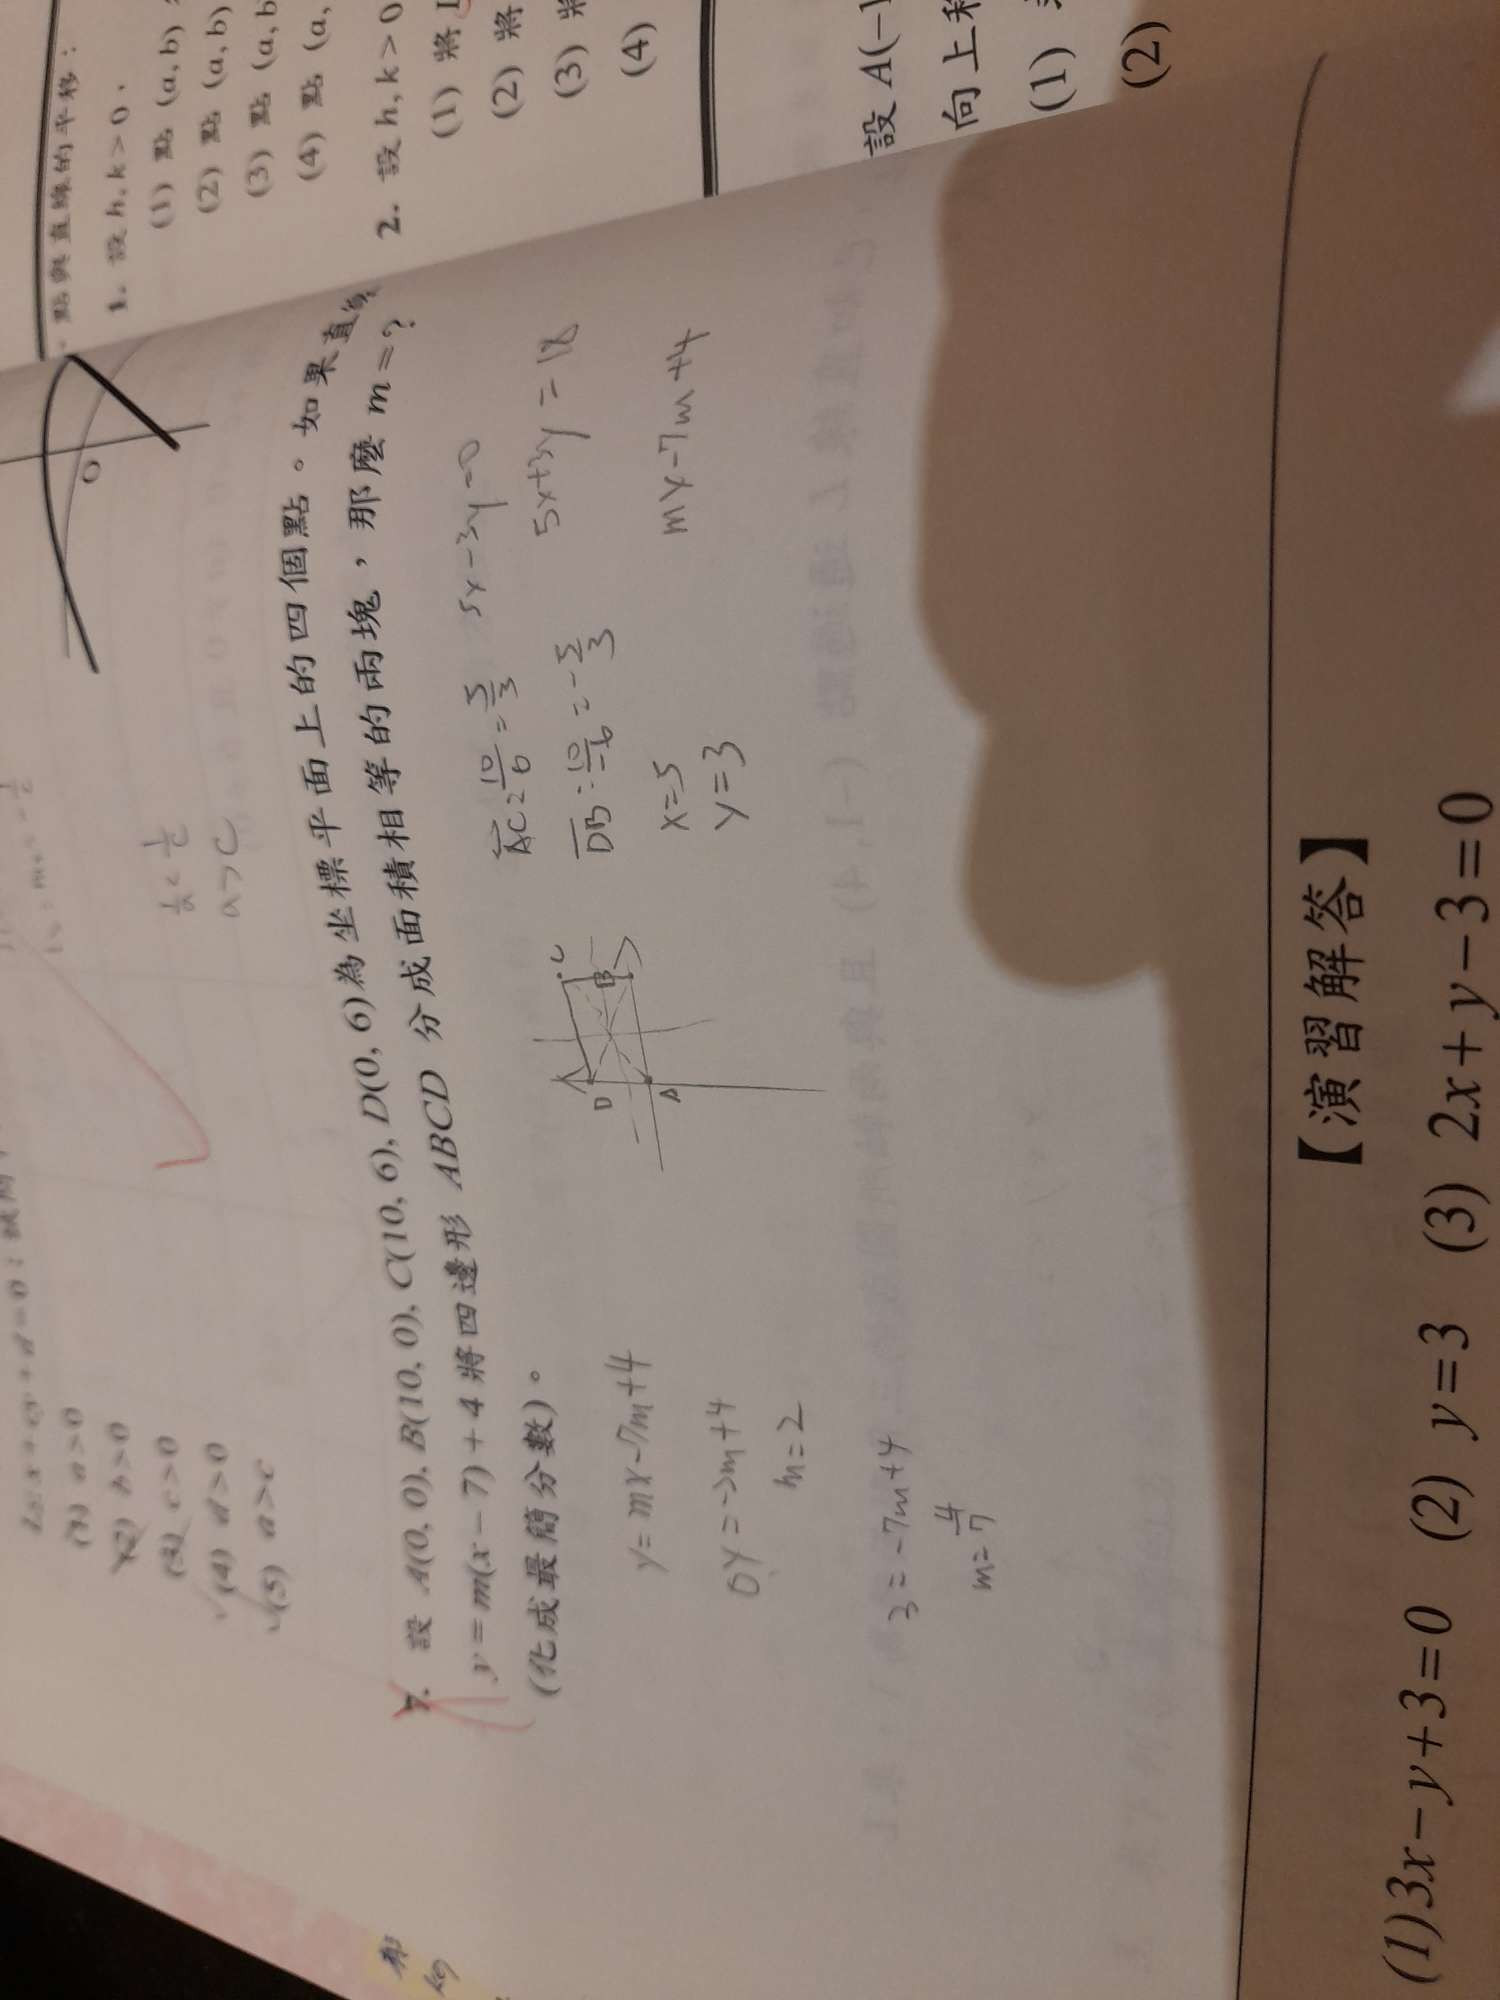 點與直線的平移：
1. 設 h, k > 0，
(1) 點 (a, b)
(2) 點 (a, b)
(3) 點 (a, b
(4) 點 (a,
2. 設 h, k > 0
(1) 將 L
(2) 將
(3) 將
(4)
設 A(-1
向上移
(1)
(2)
O
(1) a>0
(2) b>0
(3) c>0
(4) d>0
(5) a>c
a>c
7. 設 A(0, 0), B(10, 0), C(10, 6), D(0, 6)為坐標平面上的四個點。如果直線
y=m(x-7)+4 將四邊形 ABCD 分成面積相等的兩塊，那麼 m=?
(化成最簡分數)。
y=mx-7m+4
m=2
3=-7m+4
m=4/7
D
C
A
B
AC=10/6=5/3 5x-3y=0
DB:10/-6=-5/3 5x+3y=18
x=5
y=3
mx-7m+4
【演習解答】
(1)3x-y+3=0 (2) y=3 (3) 2x+y-3=0